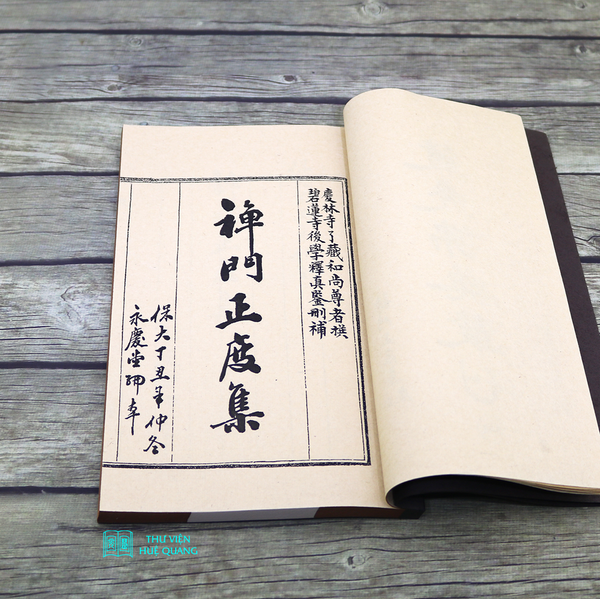 慶林寺了藏和尚尊者撰
碧蓮寺後學釋真鑒刪補
禪門正度集
保大丁丑年仲冬
永慶堂印奉
THƯ VIỆN
HUỆ QUANG